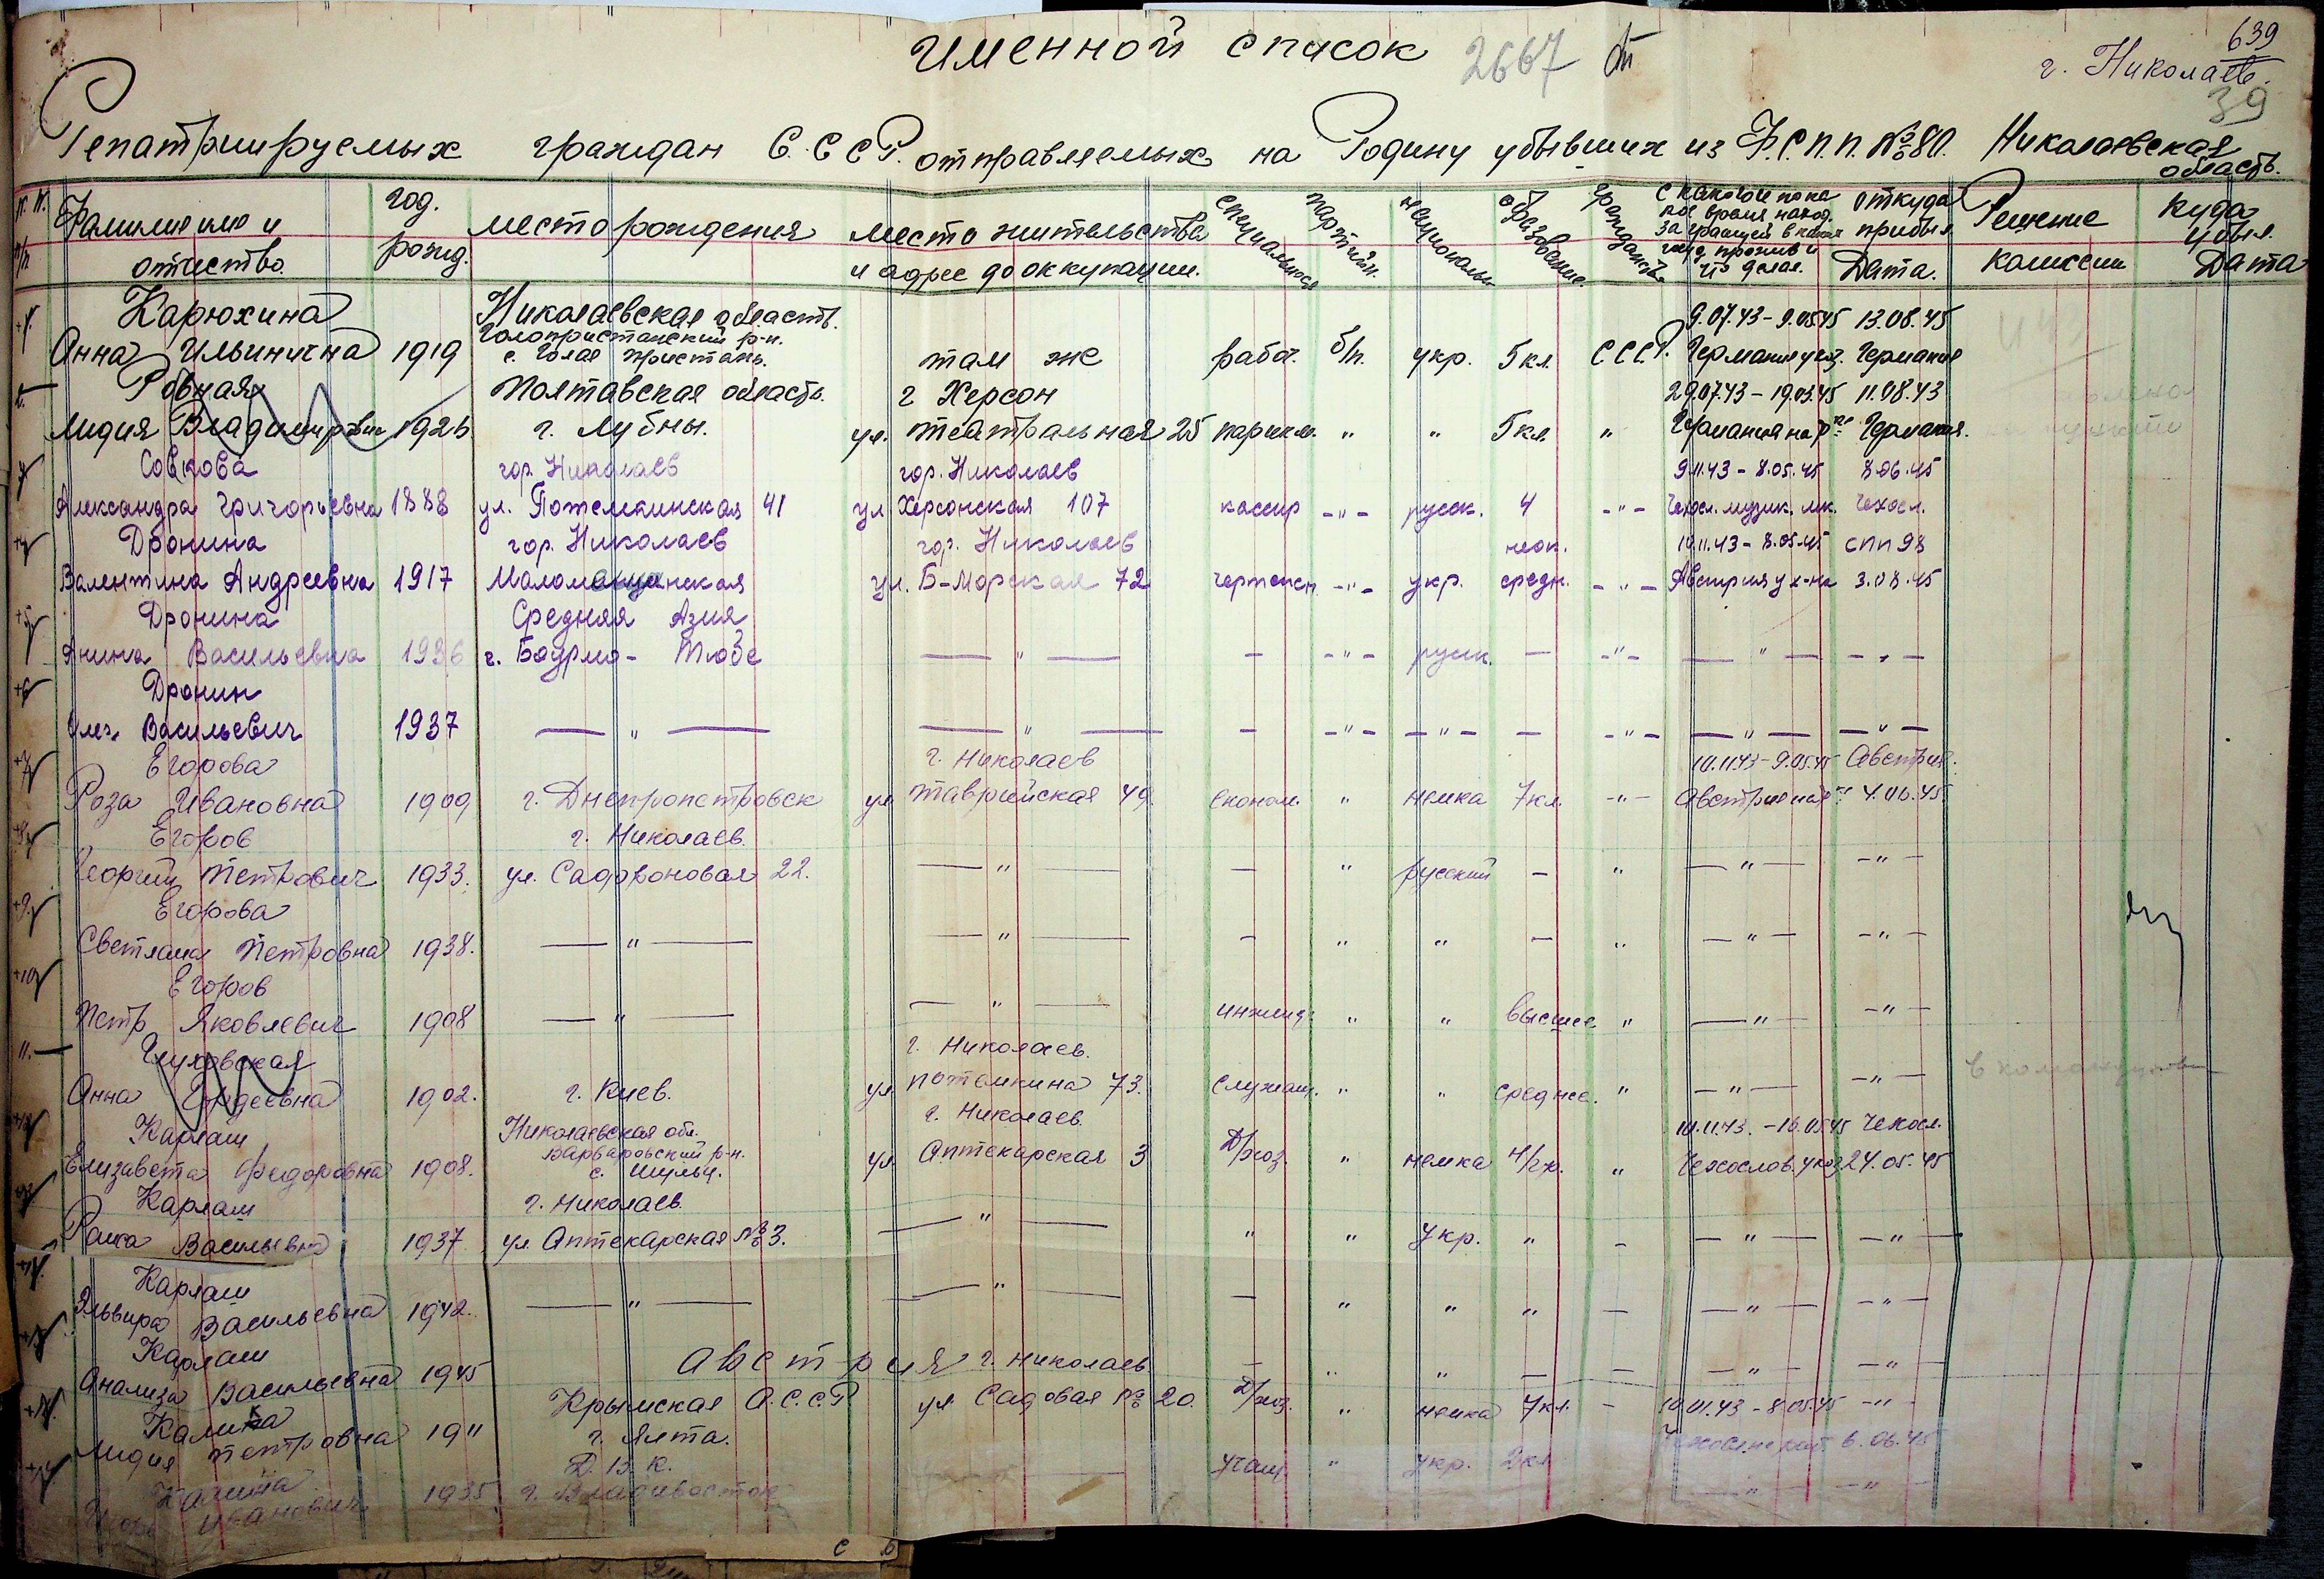 Именной список 2667
639
г. Николаев.
39
Репатриируемых граждан С.С.С.Р. отправляемых на Родину убывших из Ф.С.П.П. №80. Николаевская область.
№ № п/п Фамилия имя и отчество год. рожд. место рождения место жительства и адрес до оккупации. специальность партийн. национальн. образование. гражданств. с какого и по какое время наход. за границей в каком госуд. прожив и что делал. откуда прибыл Дата. Решение комиссии куда убыл. Дата
Карюхина Николаевская область. 9.07.43-9.05.45 13.08.45
Голопристанский р-н.
Анна Ильинична 1919 с. Голая пристань. там же работ. б/п. укр. 5 кл. СССР. Германия Германия
Ровная Полтавская область. г Херсон 29.07.43-19.03.45 11.08.43
Лидия 1926 г. Лубны. ул. Театральная 25 парикм. " " 5 кл. " Германия на Германия.
Совкова гор. Николаев гор. Николаев 9.11.43-8.05.45 8.06.45
Александра Григорьевна 1888 ул. Потемкинская 41 ул Херсонская 107 кассир -"- русск. 4 -"- Чехосл.
Дронина гор. Николаев гор. Николаев неок. 10.11.43-8.05.45 СПП 98
Валентина Андреевна 1917 ул. Б-Морская 72 чертежн. -"- укр. средн. -"- Австрия 3.08.45
Дронина Средняя Азия
Васильевна 1936 г. -"- - -"- русск. - -"- -"- -"-
Дронин
Олег Васильевич 1937 -"- -"- - -"- -"- - -"- -"- -"-
Егорова г. Николаев 10.11.43-9.05.45 Австрия.
Роза Ивановна 1909 г. Днепропетровск ул Таврийская 49. економ. " немка 7 кл. -"- Австрия 4.06.45
Егоров г. Николаев.
Георгий Петрович 1933. ул. 22. -"- - " русский - " -"- -"-
Егорова
Светлана Петровна 1938. -"- -"- - " " - " -"- -"-
Егоров
Петр Яковлевич 1908 -"- -"- инженер " " высшее " -"- -"-
г. Николаев.
Анна 1902. г. Киев. ул Потемкина 73. служащ. " " среднее. " -"- -"-
Карлаш Николаевская обл. г. Николаев. 10.11.43.-10.05.45 Чехосл.
Варваровский р-н.
Елизавета Федоровна 1908. с. Шульц. ул Аптекарская 3 Д/хоз. " немка н/гр. " Чехослов. 24.05.45
Карлаш г. Николаев.
Раиса Васильевна 1937 ул. Аптекарская №3. -"- " " Укр. " - -"- -"-
Карлаш
Эльвира Васильевна 1942. -"- -"- - " " " - -"- -"-
Карлаш
Анализа Васильевна 1945 Австрия г. Николаев - " " - - -"- -"-
Калина Крымская А.С.С.Р ул Садовая № 20. Д/хоз. " немка 7 кл. - 10.01.43-8.05.45 -"-
Лидия Петровна 1911 г. Ялта. 6.06.45
Калина Д.В.К. учащ. " укр. 2 кл
Иванович 1935 г. Владивосток -"- -"-